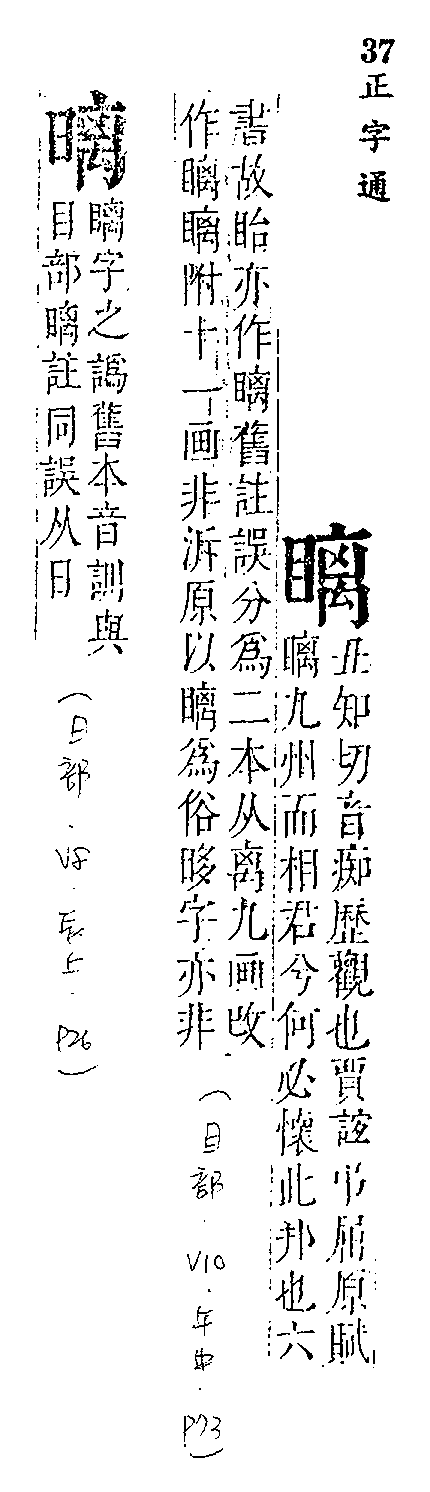 37
正字通
瞝
丑知切音痴歷觀也賈誼弔屈原賦
瞝九州而相君兮何必懷此邦也六
書故眙亦作瞝舊註誤分爲二本从离九画改
作瞝瞝附十一画非泝原以瞝爲俗眵字亦非
(目部．V10．午中．P73)
瞝字之譌舊本音訓與
目部瞝註同誤从日
(日部．V8．辰上．P26)